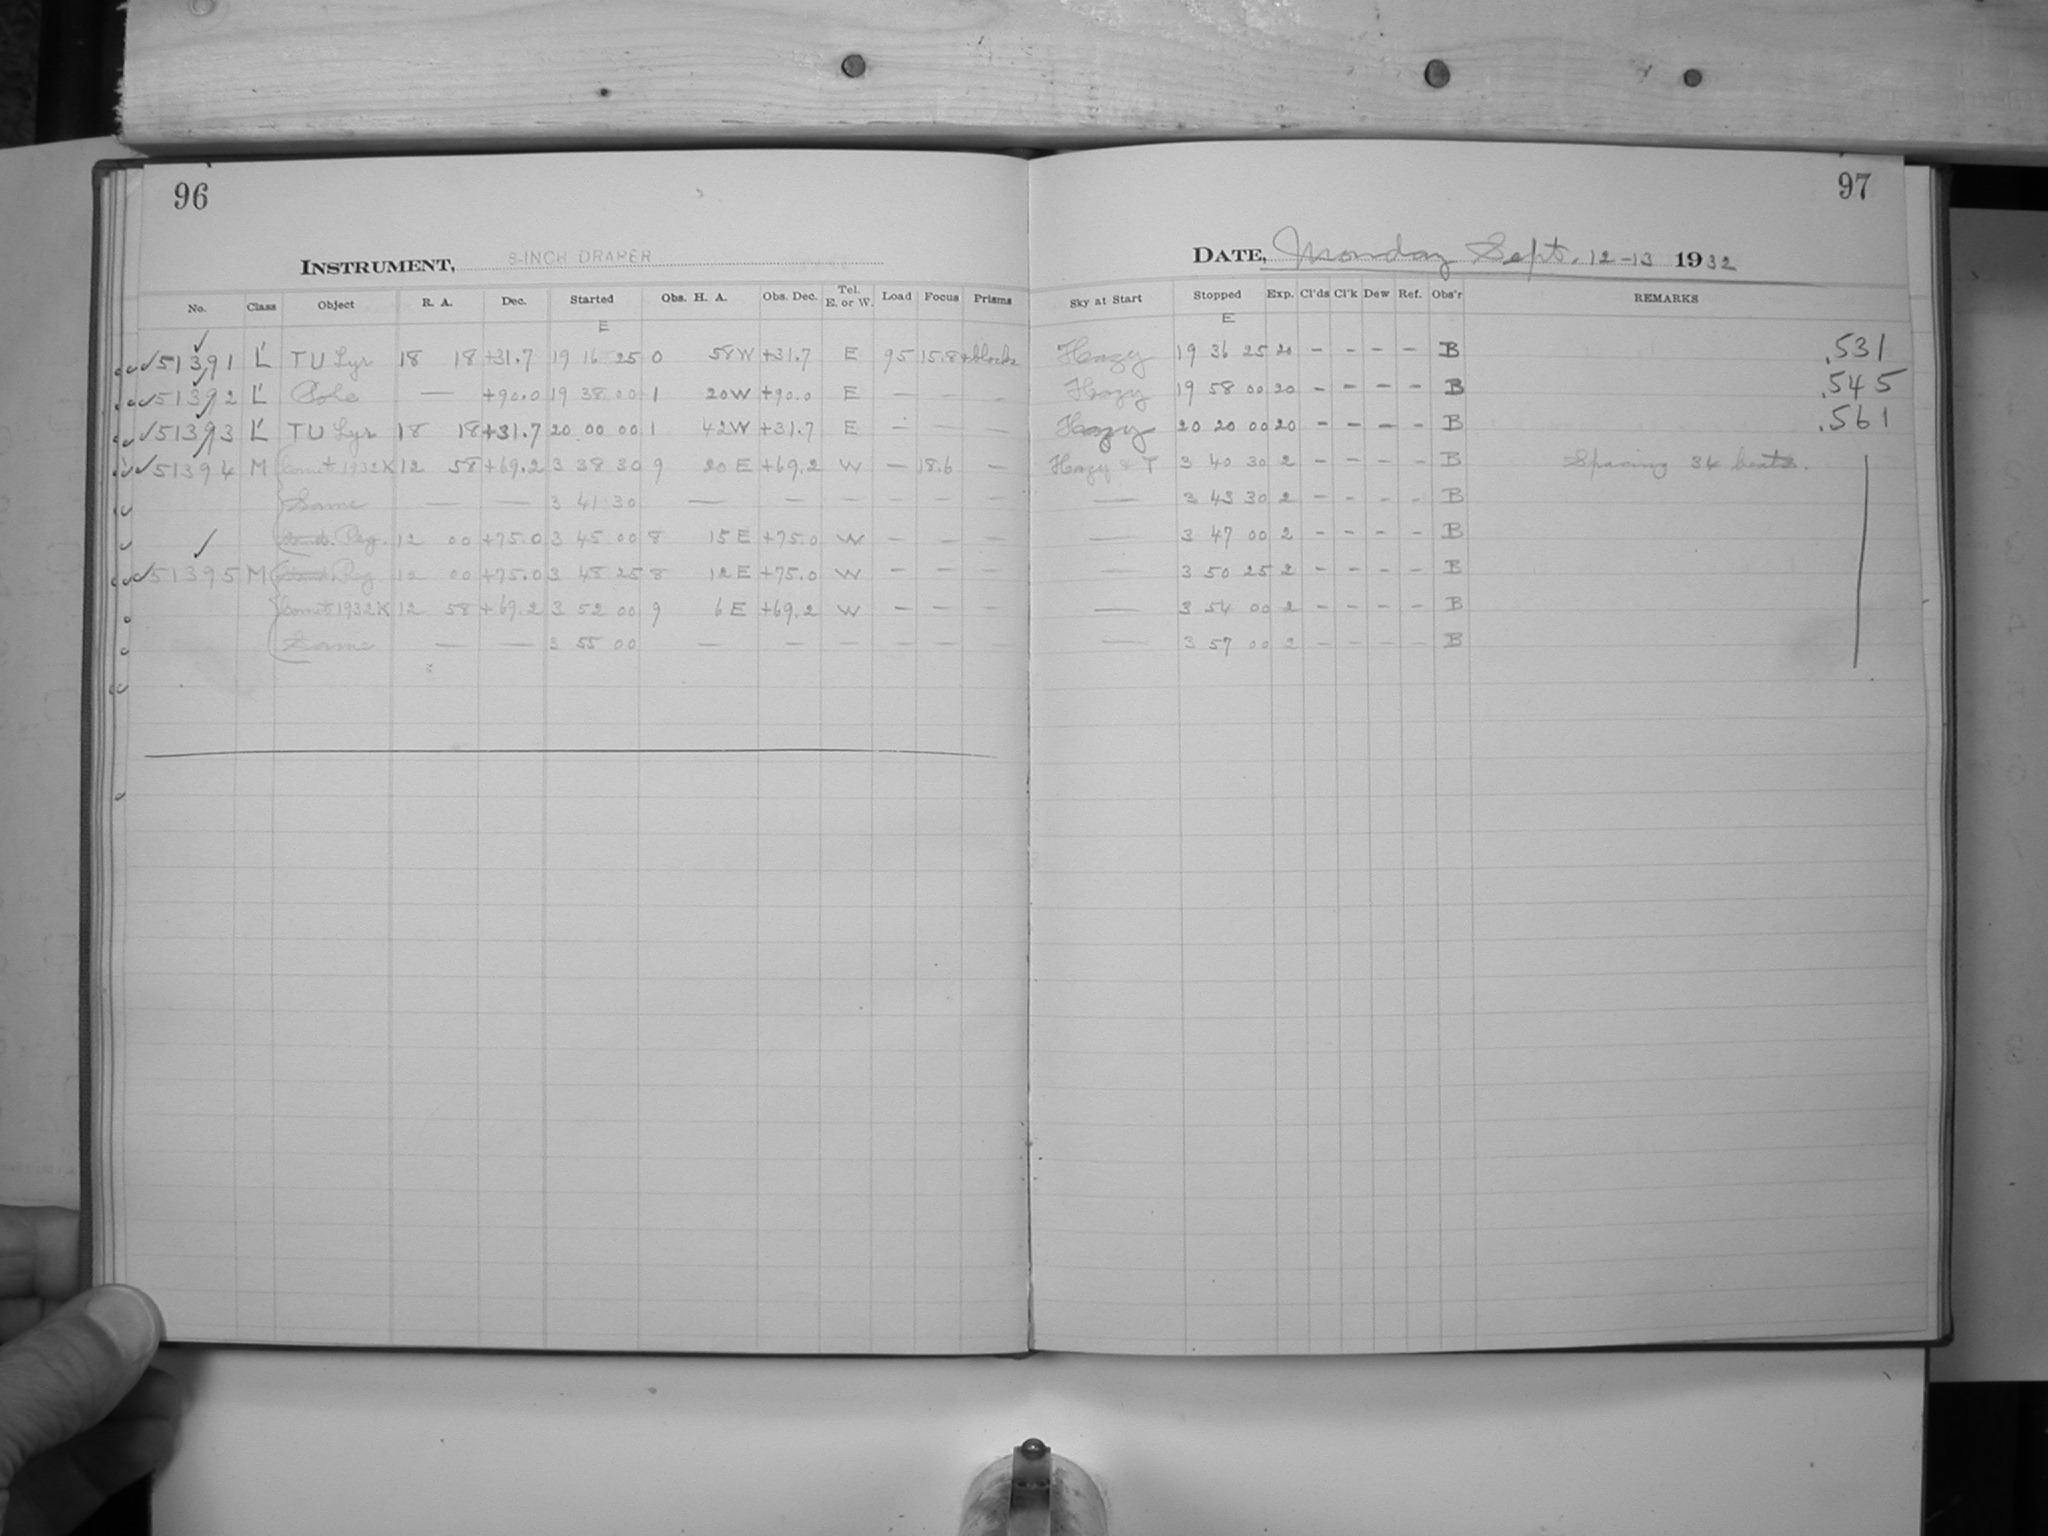 96
INSTRUMENT, 8-INCH DRAPER
No. Class Object R. A. Dec. Started Obs. H. A. Obs. Dec. Tel. E. or W. Load Focus Prisms
E
51391 L' TU Lyr 18 18 +31.7 19 16 25 0 58 W +31.7 E 95 15.8 blocks
51392 L' Pole — +90.0 19 38 00 1 20 W +90.0 E — — —
51393 L' TU Lyr 18 18 +31.7 20 00 00 1 42 W +31.7 E — — —
51394 M Comet 1932K 12 58 +69.2 3 38 30 9 20 E +69.2 W — 18.6 —
Same — — 3 41 30 — — — — — —
Reg. 12 00 +75.0 3 45 00 8 15 E +75.0 W — — —
51395 M Reg 12 00 +75.0 3 48 25 8 12 E +75.0 W — — —
Comet 1932K 12 58 +69.2 3 52 00 9 6 E +69.2 W — — —
Same — — 3 55 00 — — — — — —
97
DATE, Monday Sept. 12-13 1932
Sky at Start Stopped Exp. Cl'ds Cl'k Dew Ref. Obs'r REMARKS
E
Hazy 19 36 25 20 – – – – B .531
Hazy 19 58 00 20 – – – – B .545
Hazy 20 20 00 20 – – – – B .561
Hazy & T 3 40 30 2 – – – – B Spacing 34 beats.
— 3 43 30 2 – – – – B
— 3 47 00 2 – – – – B
— 3 50 25 2 – – – – B
— 3 54 00 2 – – – – B
— 3 57 00 2 – – – – B